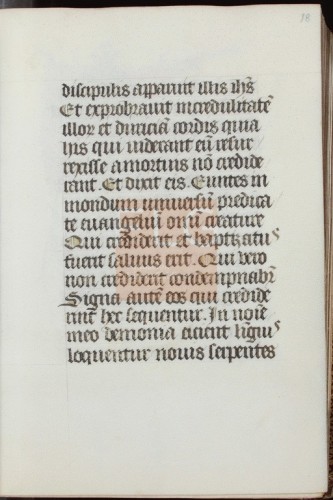 18
discipulis apparuit illis ihs̄
Et exprobrauit incredulitatē
illor et duriciā cordis quia
his qui uiderant eū resur
rexisse a mortuis nō credide
rant. Et dixit eis. Euntes in
mondum uniuersū predica
te euangeliū om̄i creature
Qui crediderit et baptizatus
fuerit saluus erit. Qui vero
non crediderit condempnabr̄
Signa autē eos qui credide
rint hec sequentur. In noīe
meo demonia eicient liguis
loquentur nouis serpentes